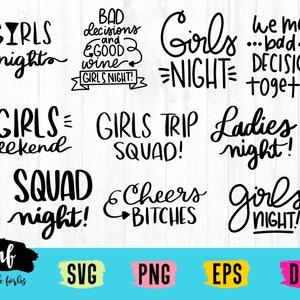 GIRLS
nights
BAD
decisions
and
GOOD
wine
GIRLS NIGHT!
Girls
NIGHT
we m
...bad
DECISI
toget
GIRLS
eekend
GIRLS TRIP
SQUAD!
Ladies
night!
SQUAD
night!
Cheers
BITCHES
girls
NIGHT!
SVG
PNG
EPS
D